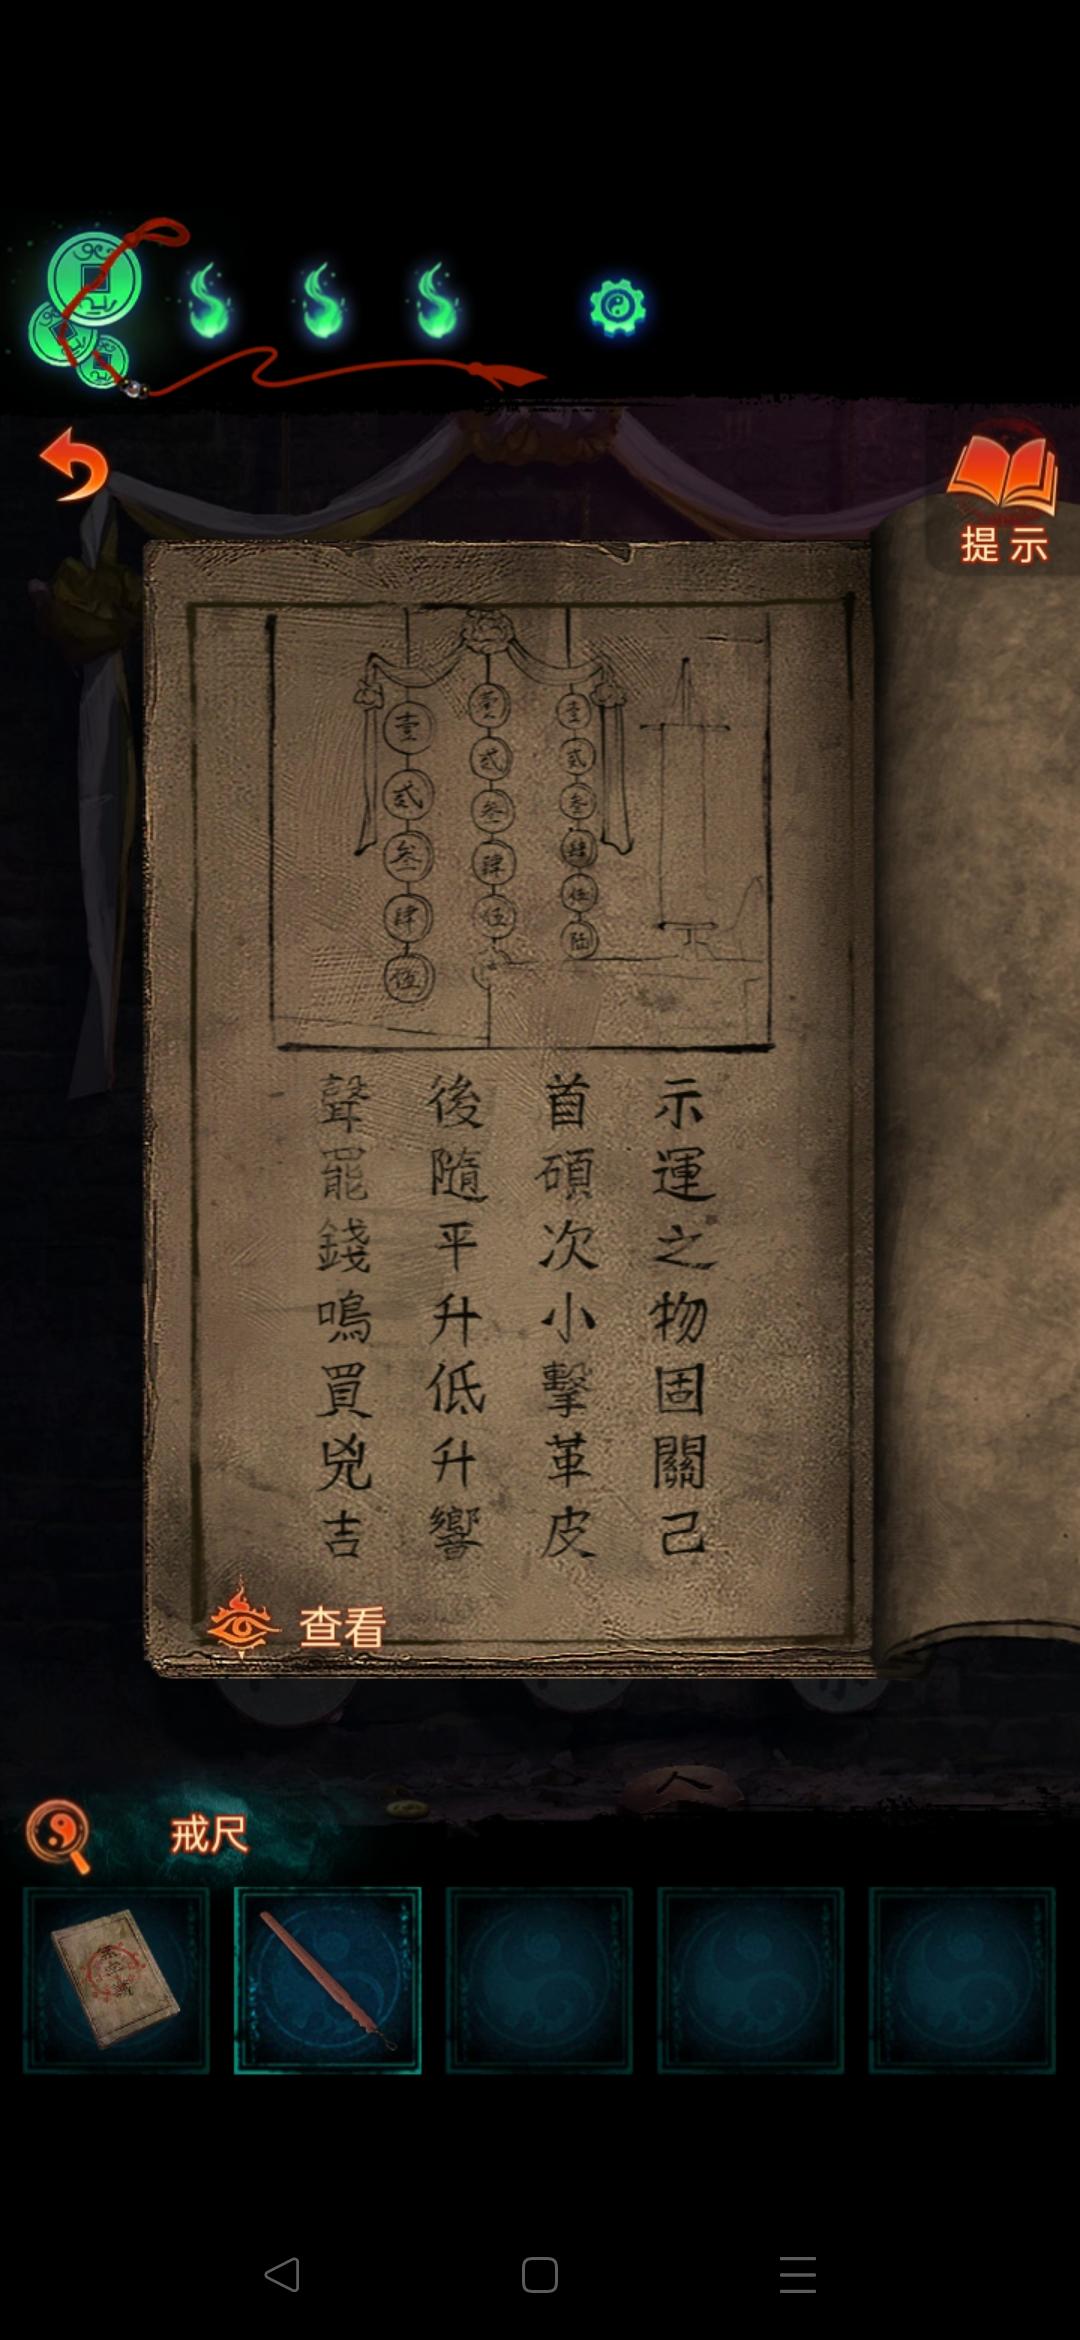 提示
壹 壹 壹
贰 贰 贰
叁 叁 叁
肆 肆 肆
伍 伍 伍
陆
示運之物固關己
首碩次小擊革皮
後隨平升低升響
聲罷錢鳴買兇吉
查看
人
戒尺